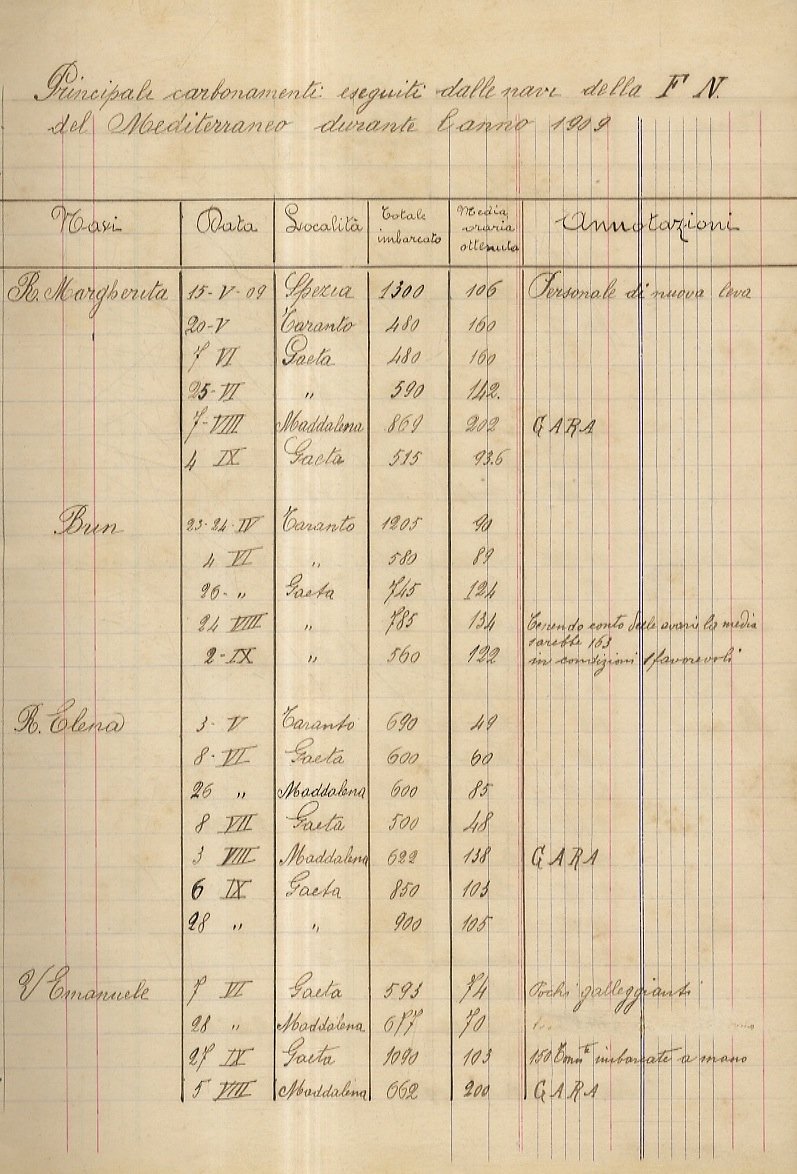 Principale carbonamenti eseguiti dalle navi della F. N.
del Mediterraneo durante l'anno 1909
Navi Data Località Totale imbarcato Media oraria ottenuta Annotazioni
R. Margherita 15-V-09 Spezia 1300 106 Personale di nuova leva
20-V Taranto 480 160
7 VI Gaeta 480 160
25-VI " 590 142.
7-VIII Maddalena 869 202 GARA
4 IX Gaeta 515 93.6
Brin 23-24-IV Taranto 1205 90
4 VI " 580 89
26- " Gaeta 745 124
24 VIII " 785 134 Tenendo conto delle avarie la media
sarebbe 163
2-IX " 560 122 in condizioni favorevoli
R. Elena 3-V Taranto 690 49
8-VI Gaeta 600 60
26 " Maddalena 600 85
8 VII Gaeta 500 48
3 VIII Maddalena 622 138 GARA
6 IX Gaeta 850 103
28 " " 900 105
V Emanuele 7 VI Gaeta 593 74 Pochi galleggianti
28 " Maddalena 677 70
27 IX Gaeta 1090 103 150 Tonnte imbarcate a mano
5 VIII Maddalena 662 200 GARA